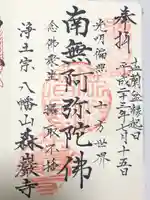 奉拝
盂蘭盆
平成二十三年七月十五日
光明徧照 十方世界
南無阿弥陀佛
念佛衆生 摂取不捨
浄土宗 八幡山 森巖寺